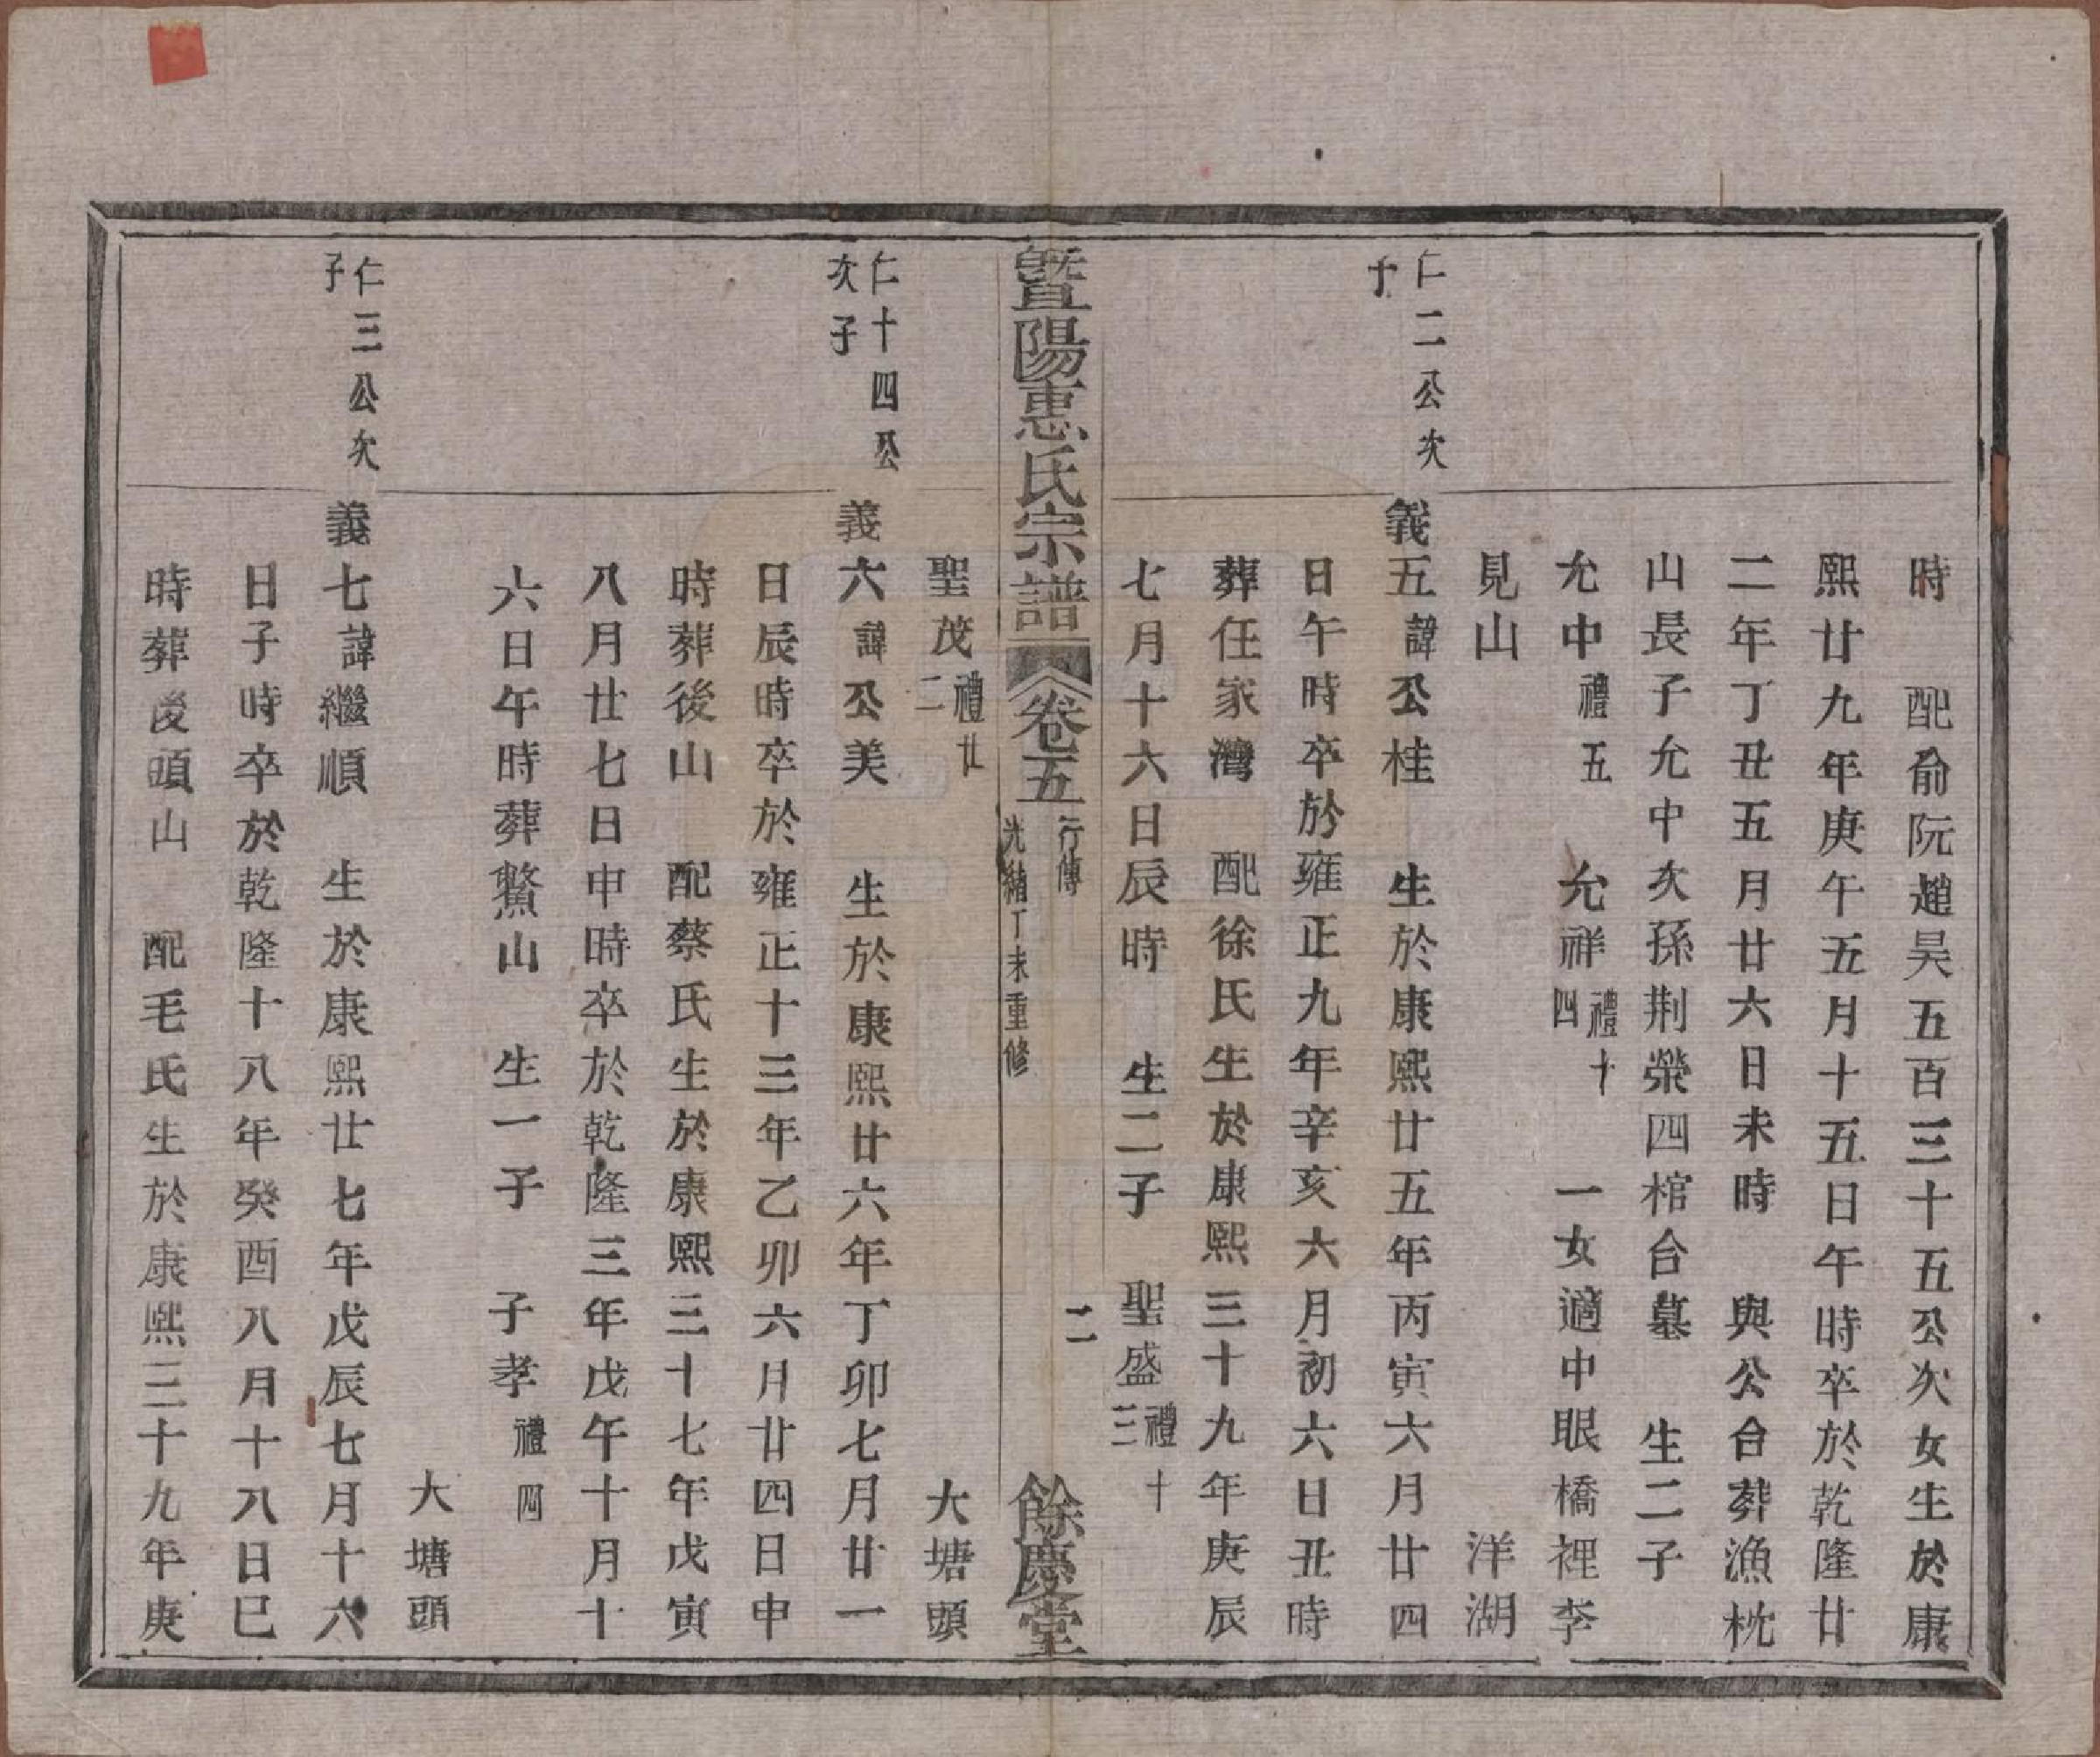 時　配俞阮趙昊五百三十五公次女生於康
熙廿九年庚午五月十五日午時卒於乾隆廿
二年丁丑五月廿六日未時　與公合葬漁枕
山長子允中次孫荆榮四棺合墓　生二子
允中禮五　允祥禮十四　一女適中眼橋裡李
見山　洋湖
仁二公次子
義五諱公桂　生於康熙廿五年丙寅六月廿四
日午時卒於雍正九年辛亥六月初六日丑時
葬任家灣　配徐氏生於康熙三十九年庚辰
七月十六日辰時　生二子　聖盛禮十三
暨陽惠氏宗譜　卷五　行傳　光緒丁未重修　二　餘慶堂
聖茂禮廿二　大塘頭
仁十四公次子
義六諱公美　生於康熙廿六年丁卯七月廿一
日辰時卒於雍正十三年乙卯六月廿四日申
時葬後山　配蔡氏生於康熙三十七年戊寅
八月廿七日申時卒於乾隆三年戊午十月十
六日午時葬鱉山　生一子　子孝禮四
大塘頭
仁三公次子
義七諱繼順　生於康熙廿七年戊辰七月十六
日子時卒於乾隆十八年癸酉八月十八日巳
時葬後頭山　配毛氏生於康熙三十九年庚